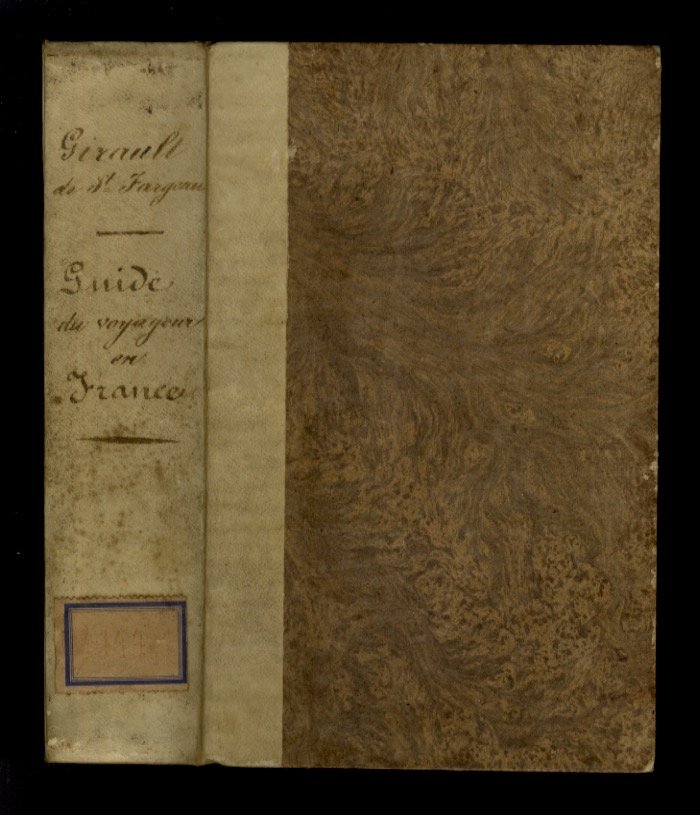 Girault
de St. Fargeau
Guide
du voyageur
en
France